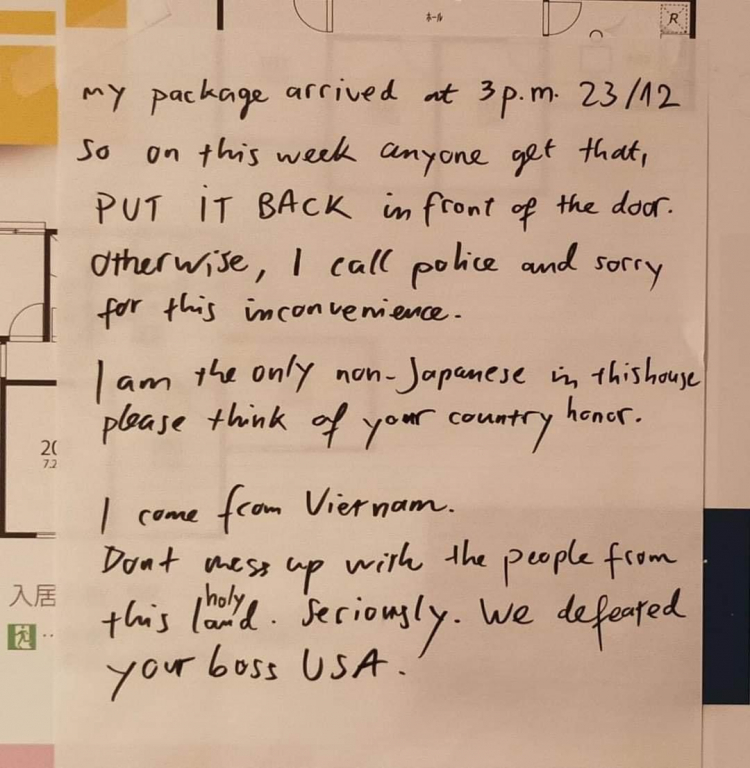 ホール
R
my package arrived at 3 p.m. 23/12
so on this week anyone get that,
PUT IT BACK in front of the door.
Otherwise, I call police and sorry
for this inconvenience.
I am the only non-Japanese in this house
please think of your country honor.
20
7.2
I come from Vietnam.
Dont mess up with the people from
this holy land. Seriously. We defeated
your boss USA.
入居